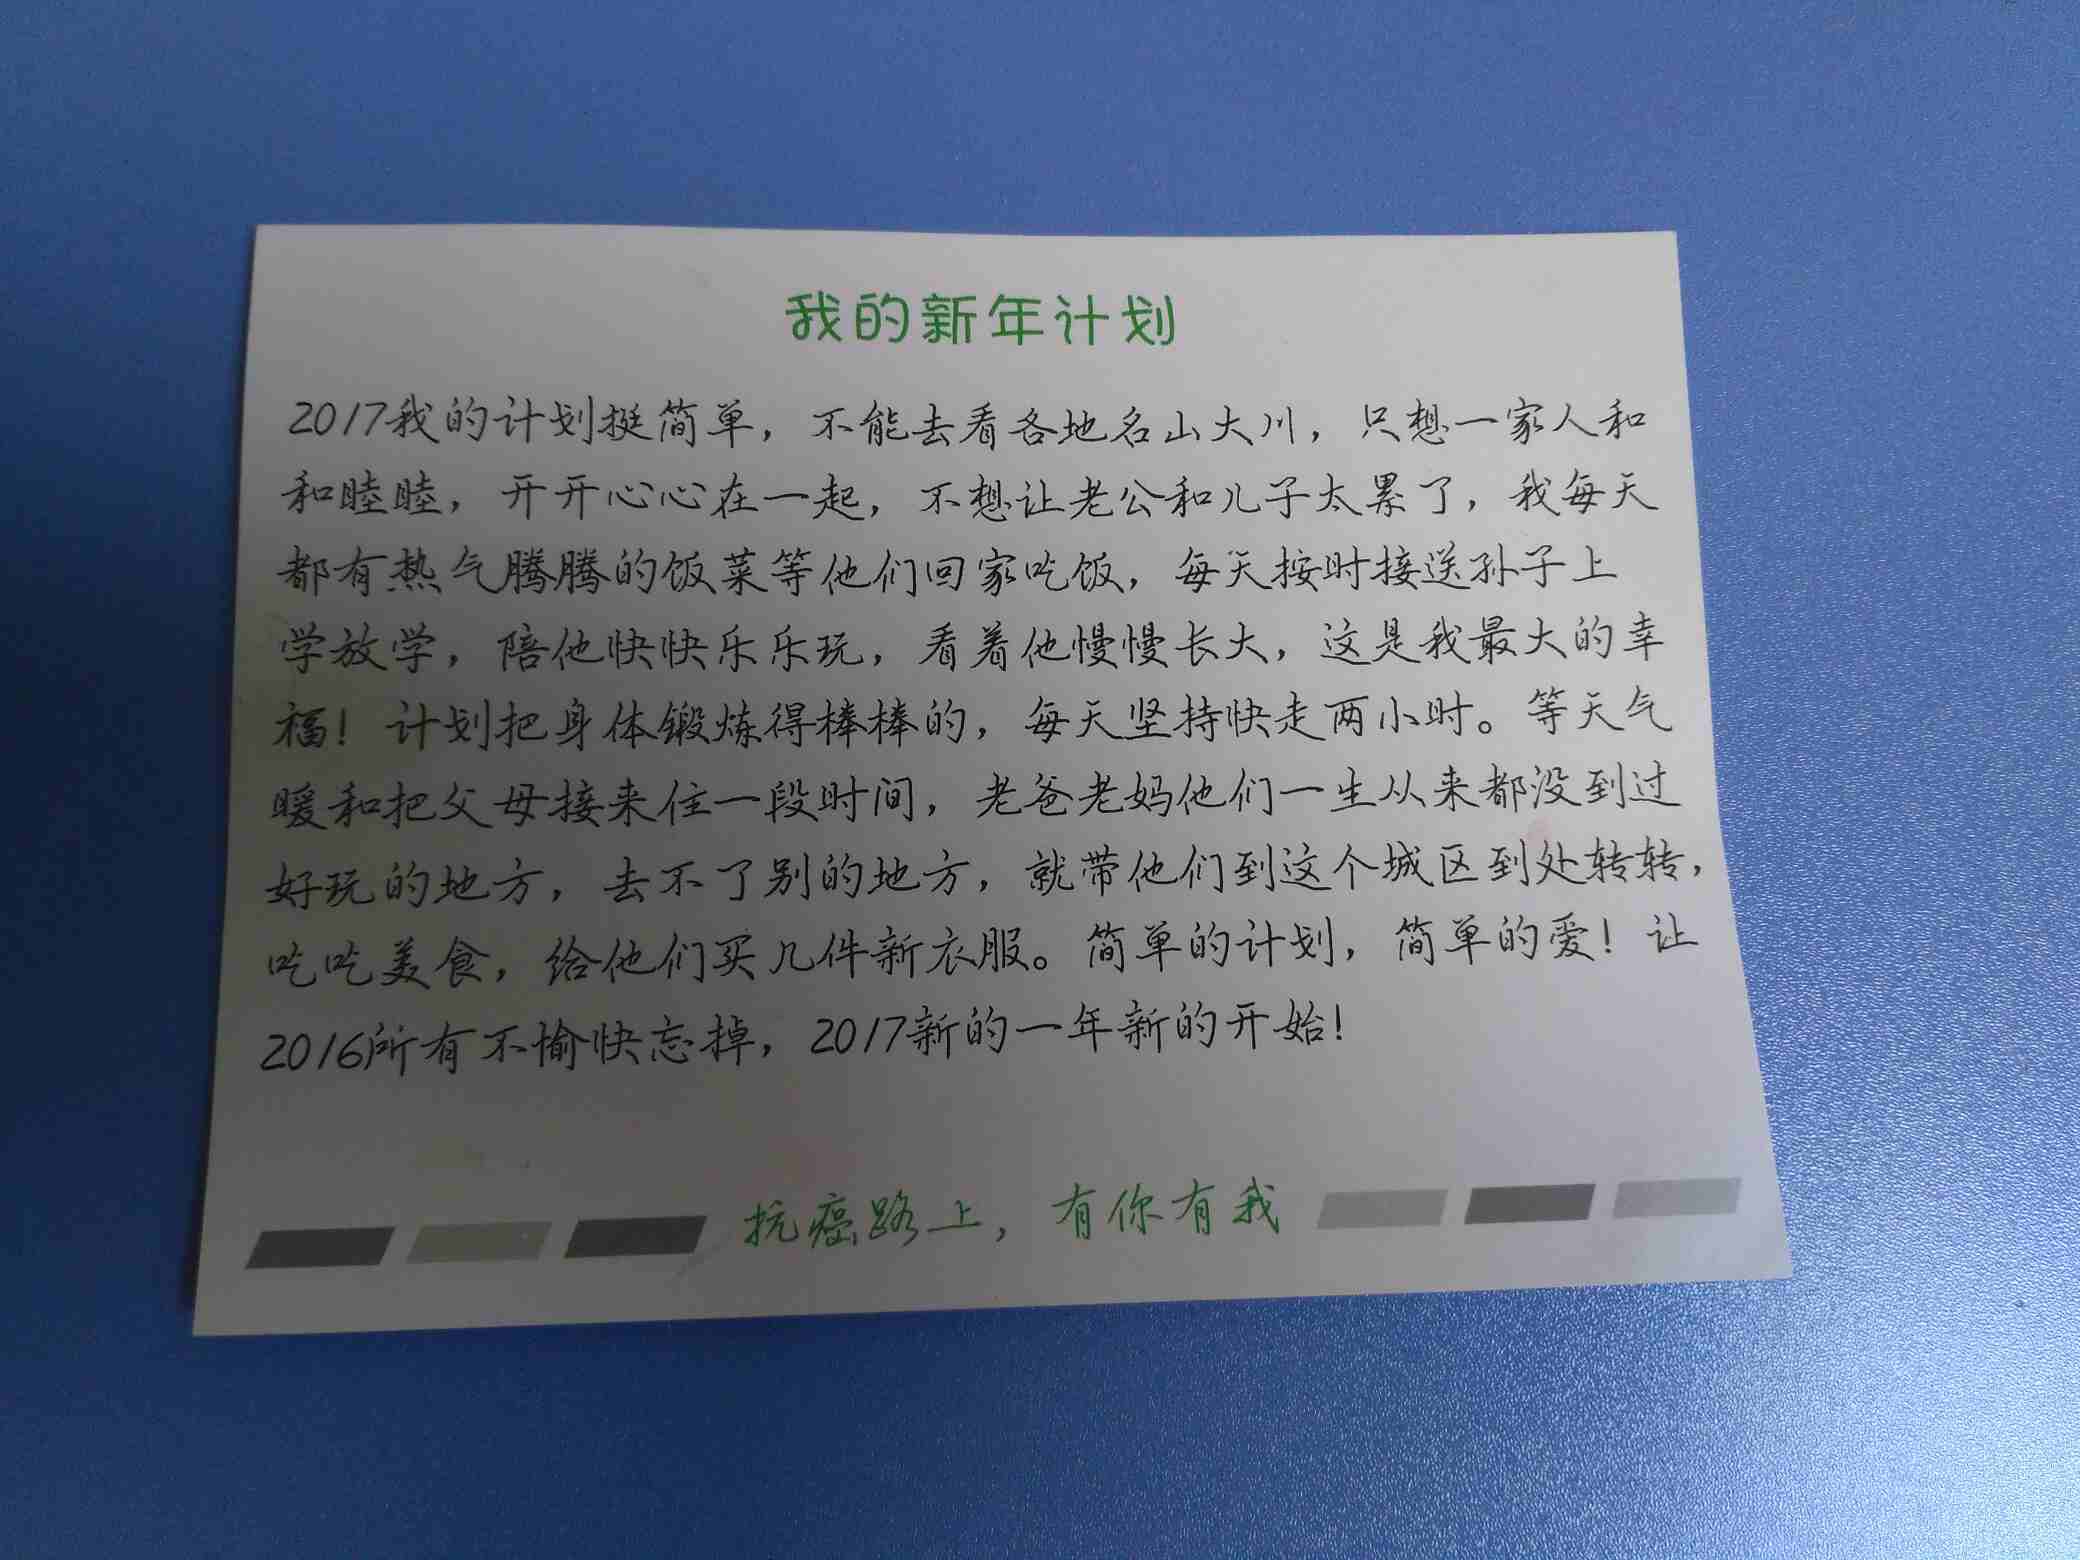 我的新年计划
2017我的计划挺简单，不能去看各地名山大川，只想一家人和
和睦睦，开开心心在一起，不想让老公和儿子太累了，我每天
都有热气腾腾的饭菜等他们回家吃饭，每天按时接送孙子上
学放学，陪他快快乐乐玩，看着他慢慢长大，这是我最大的幸
福！计划把身体锻炼得棒棒的，每天坚持快走两小时。等天气
暖和把父母接来住一段时间，老爸老妈他们一生从来都没到过
好玩的地方，去不了别的地方，就带他们到这个城区到处转转，
吃吃美食，给他们买几件新衣服。简单的计划，简单的爱！让
2016所有不愉快忘掉，2017新的一年新的开始！
抗癌路上，有你有我